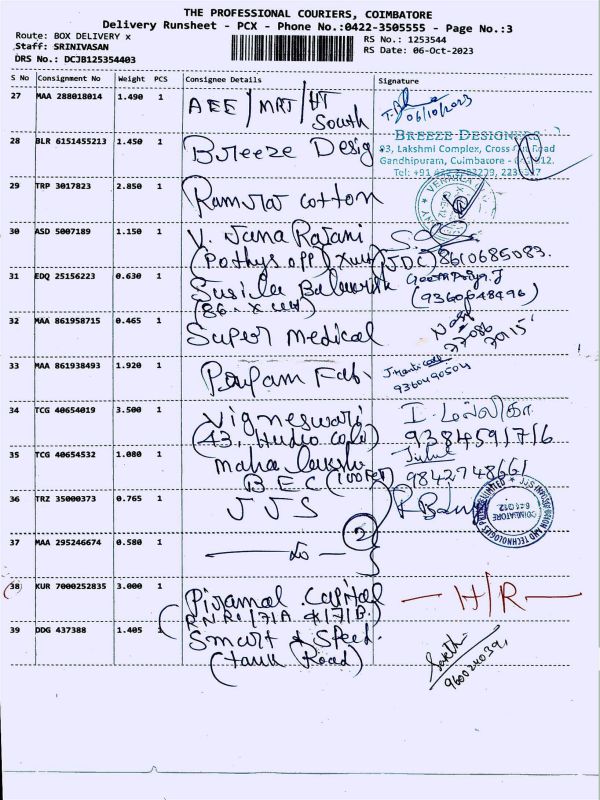 THE PROFESSIONAL COURIERS, COIMBATORE
Delivery Runsheet - PCX - Phone No.:0422-3505555 - Page No.:3
Route: BOX DELIVERY x
RS No.: 1253544
Staff: SRINIVASAN
RS Date: 06-Oct-2023
DRS No.: DCJB125354403
S No Consignment No Weight PCS Consignee Details Signature
27 MAA 288018014 1.490 1 AEE/MRT/HT
South
06/10/2023
28 BLR 6151455213 1.450 1 Breeze Desig
BREEZE DESIGNERS
93, Lakshmi Complex, Cross Road
Gandhipuram, Coimbatore - 12.
Tel: +91 422
29 TRP 3017823 2.850 1 Ramraj cotton
30 ASD 5007189 1.150 1 V. Jana Rajani
(Pothys opp) (JDC) 8610685083.
31 EDQ 25156223 0.630 1 Susila
(86. X cut) (9360648496)
32 MAA 861958715 0.465 1 Super medical
77086
70115
33 MAA 861938493 1.920 1 Fab
9360490504
34 TCG 40654019 3.500 1 Vigneswari
(43, 9384591716
35 TCG 40654532 1.080 1 maha
BEC (100 Feet) 9842748661
36 TRZ 35000373 0.765 1 JJS
COIMBATORE
641012
37 MAA 295246674 0.580 1
2
38 KUR 7000252835 3.000 1 Piramal Capital
H/R
39 DDG 437388 1.405 1 Smart & Speed.
(tank Road)
Sakthi